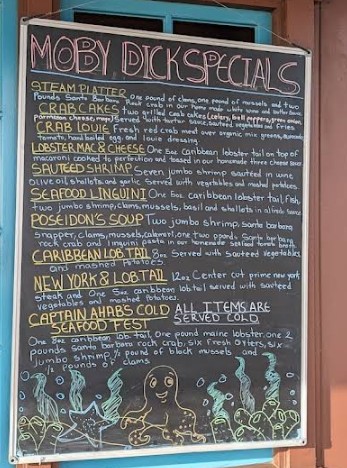 MOBY DICK SPECIALS
STEAM PLATTER One pound of clams, one pound of mussels and two
Pounds Santa Barbara Rock crab in our home made white wine and butter sauce
CRAB CAKES Two grilled crab cakes (celery, bell peppers, green onion,
parmesan cheese, mayo) Served with tartar sauce, sauteed vegetables and fries
CRAB LOUIE Fresh red crab meat over organic mix greens, avocado
tomato, hard boiled egg, and louie dressing
LOBSTER MAC & CHEESE One 5oz Caribbean lobster tail on top of
macaroni cooked to perfection and tossed in our homemade three cheese sauce
SAUTEED SHRIMP Seven jumbo shrimp sauteed in wine
Olive oil, shallots, and garlic Served with vegetables and mashed potatoes
SEAFOOD LINGUINI One 5oz caribbean lobster tail, fish,
two jumbo shrimp, clams, mussels, basil and shallots in alfredo sauce
POSEIDON'S SOUP Two jumbo shrimp, santa barbara
snapper, clams, mussels, calamari, one two pounds Santa barbara
rock crab and linguini pasta in our homemade seafood tomato broth
CARIBBEAN LOB TAIL 8oz Served with sauteed vegetables
and mashed potatoes.
NEW YORK & LOB TAIL 12oz Center cut prime new york
steak and One 5oz caribbean lob tail served with sauteed
vegetables and mashed Potatoes.
CAPTAIN AHABS COLD ALL ITEMS ARE
SEAFOOD FEST SERVED COLD
One 8oz caribbean lob tail, One pound maine lobster, one 2
pounds Santa barbara rock crab, six Fresh oysters, six
jumbo shrimp, ½ pound of black mussels and
½ pounds of clams